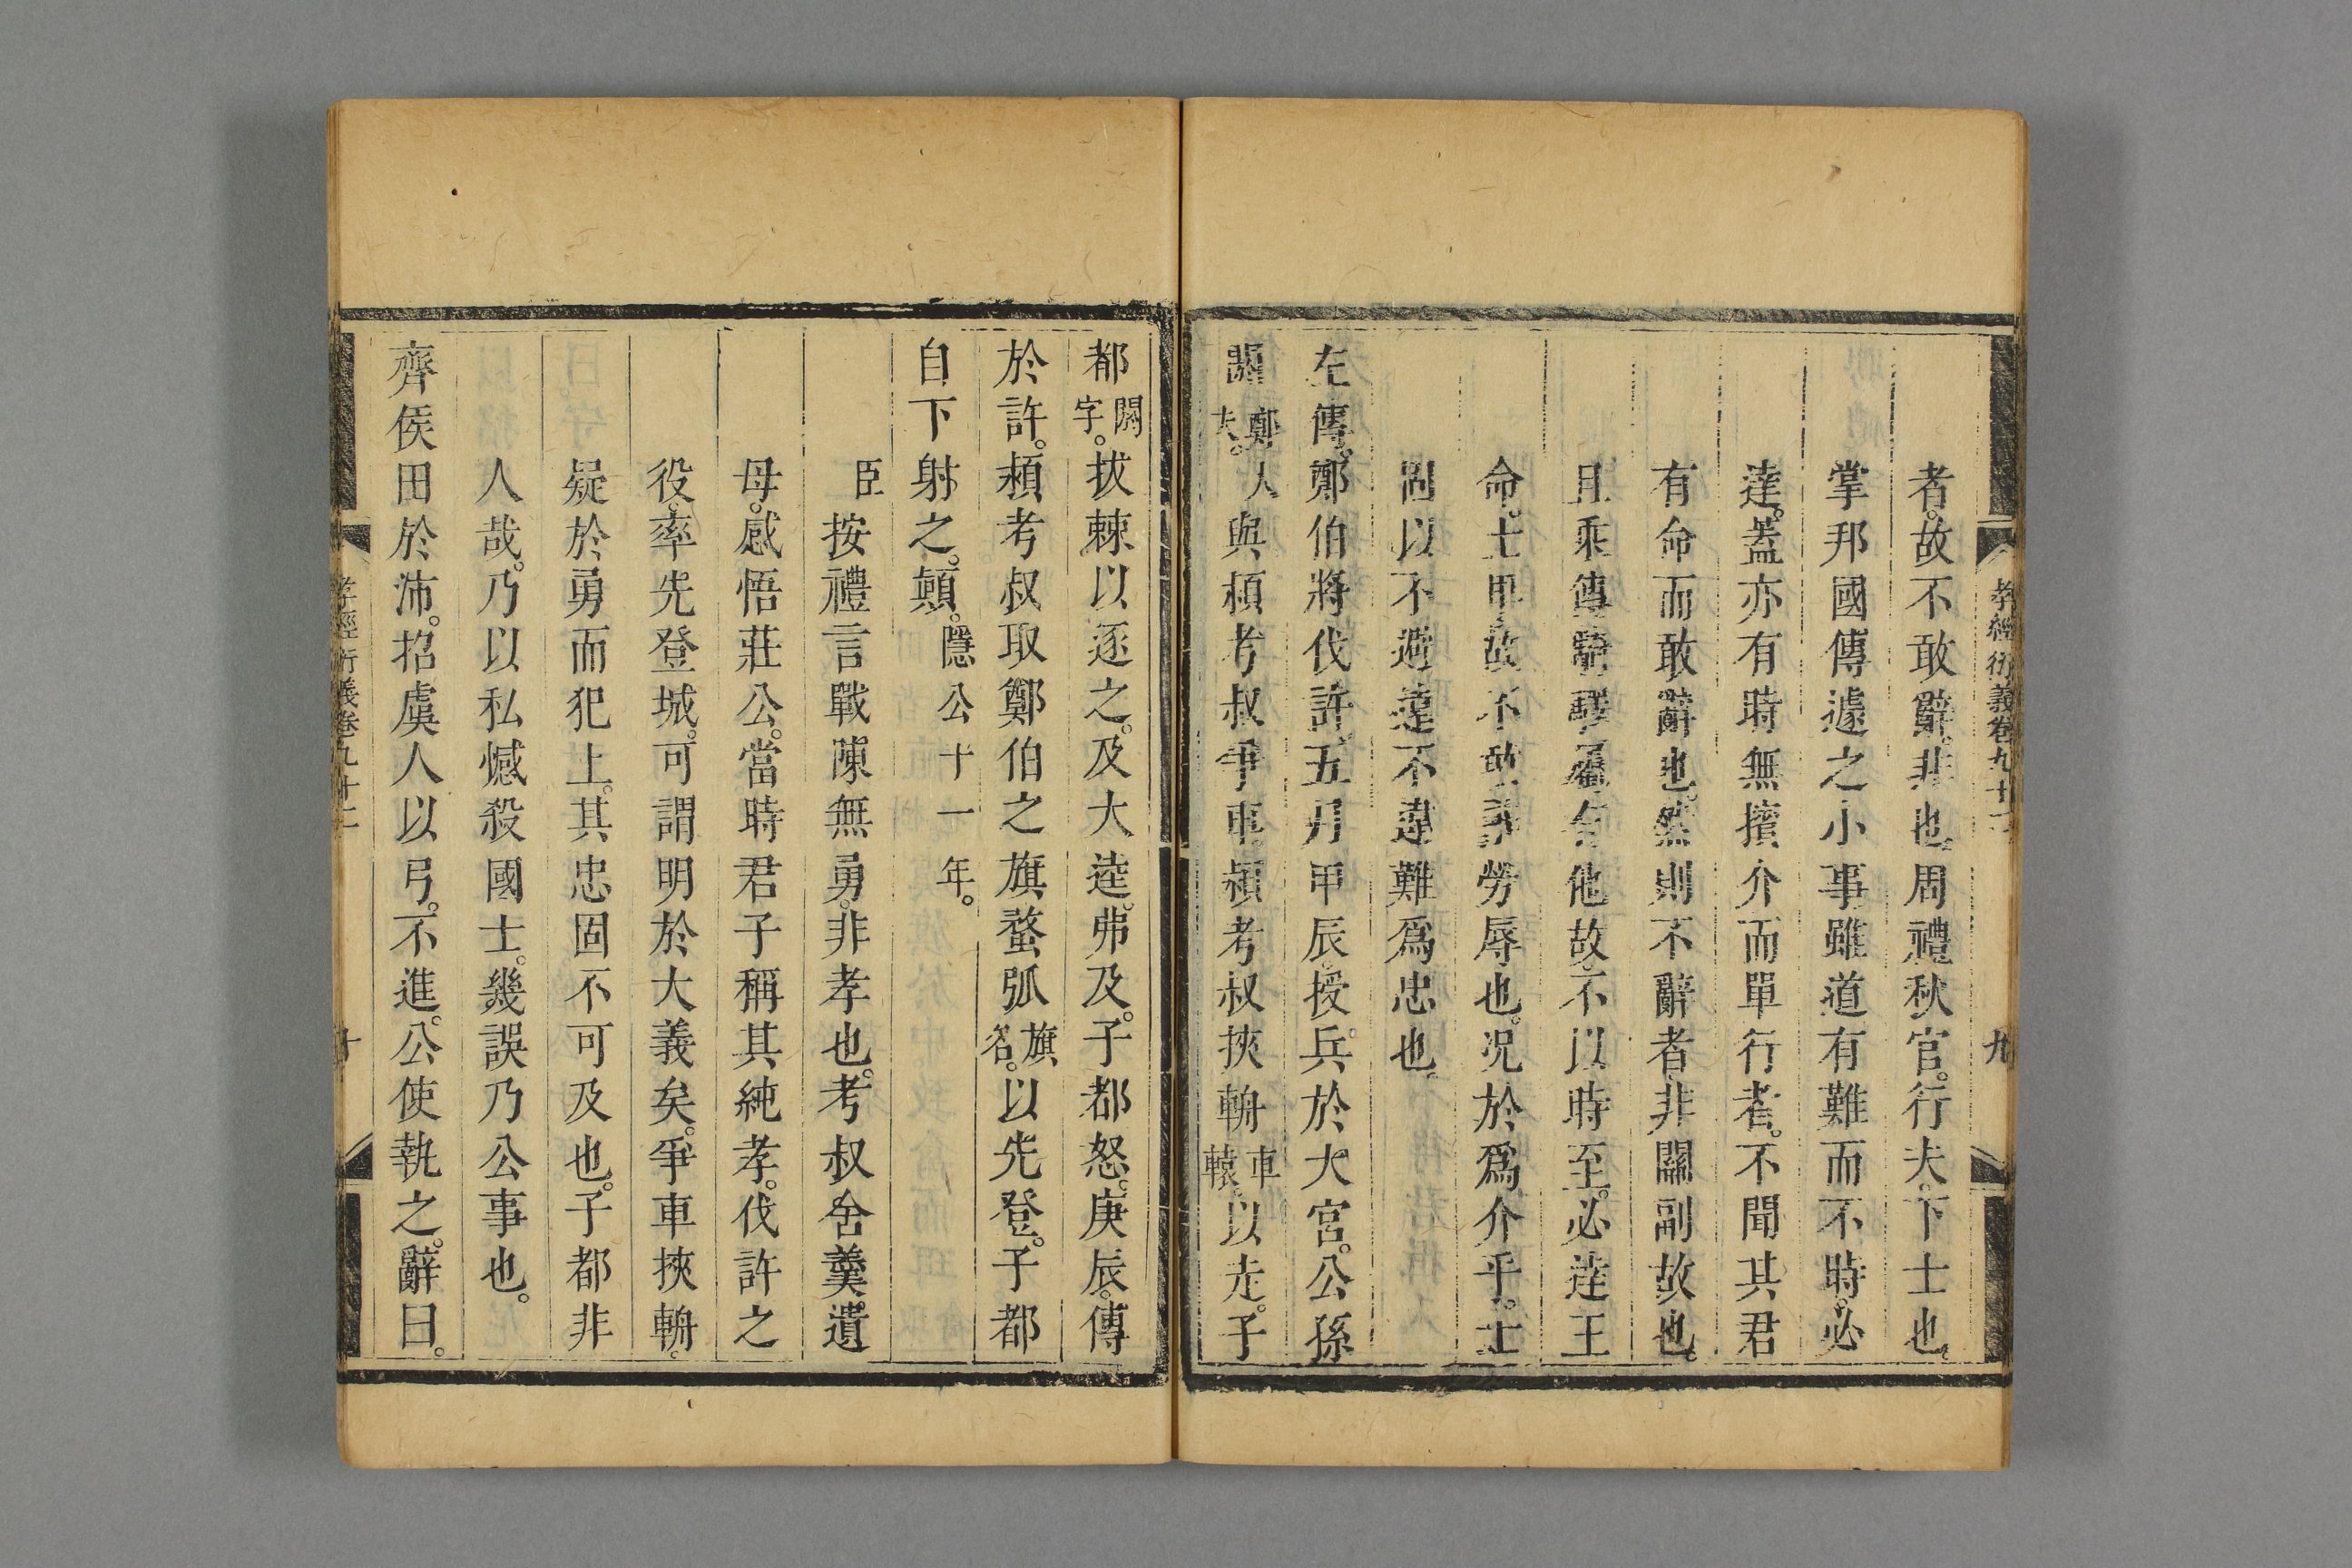 孝經衍義卷九十二
九
者。故不敢辭。非也。周禮秋官。行夫。下士也。
掌邦國傳遽之小事。雖道有難而不時。必
達。蓋亦有時無擯介而單行者。不聞其君
有命而敢辭也。然則不辭者。非關副故也。
且乘傳騎驛。雖有他故。不以時至。必達王
命。士卑。故不敢辭勞辱也。况於爲介乎。士
固以不避違不違難爲忠也。
左傳。鄭伯將伐許。五月甲辰。授兵於大宮。公孫
閼鄭大夫。與頴考叔爭車。頴考叔挾輈車轅。以走。子
都閼字。拔棘以逐之。及大逵。弗及。子都怒。庚辰。傅
於許。頴考叔取鄭伯之旗蝥弧旗名。以先登。子都
自下射之。顛。隱公十一年。
臣按禮言戰陳無勇。非孝也。考叔舍羹。遺
母。感悟莊公。當時君子稱其純孝。伐許之
役。率先登城。可謂明於大義矣。爭車挾輈。
疑於勇而犯上。其忠固不可及也。子都非
人哉。乃以私憾殺國士。幾誤乃公事也。
齊侯田於沛。招虞人以弓。不進。公使執之。辭曰。
孝經衍義卷九十二
十